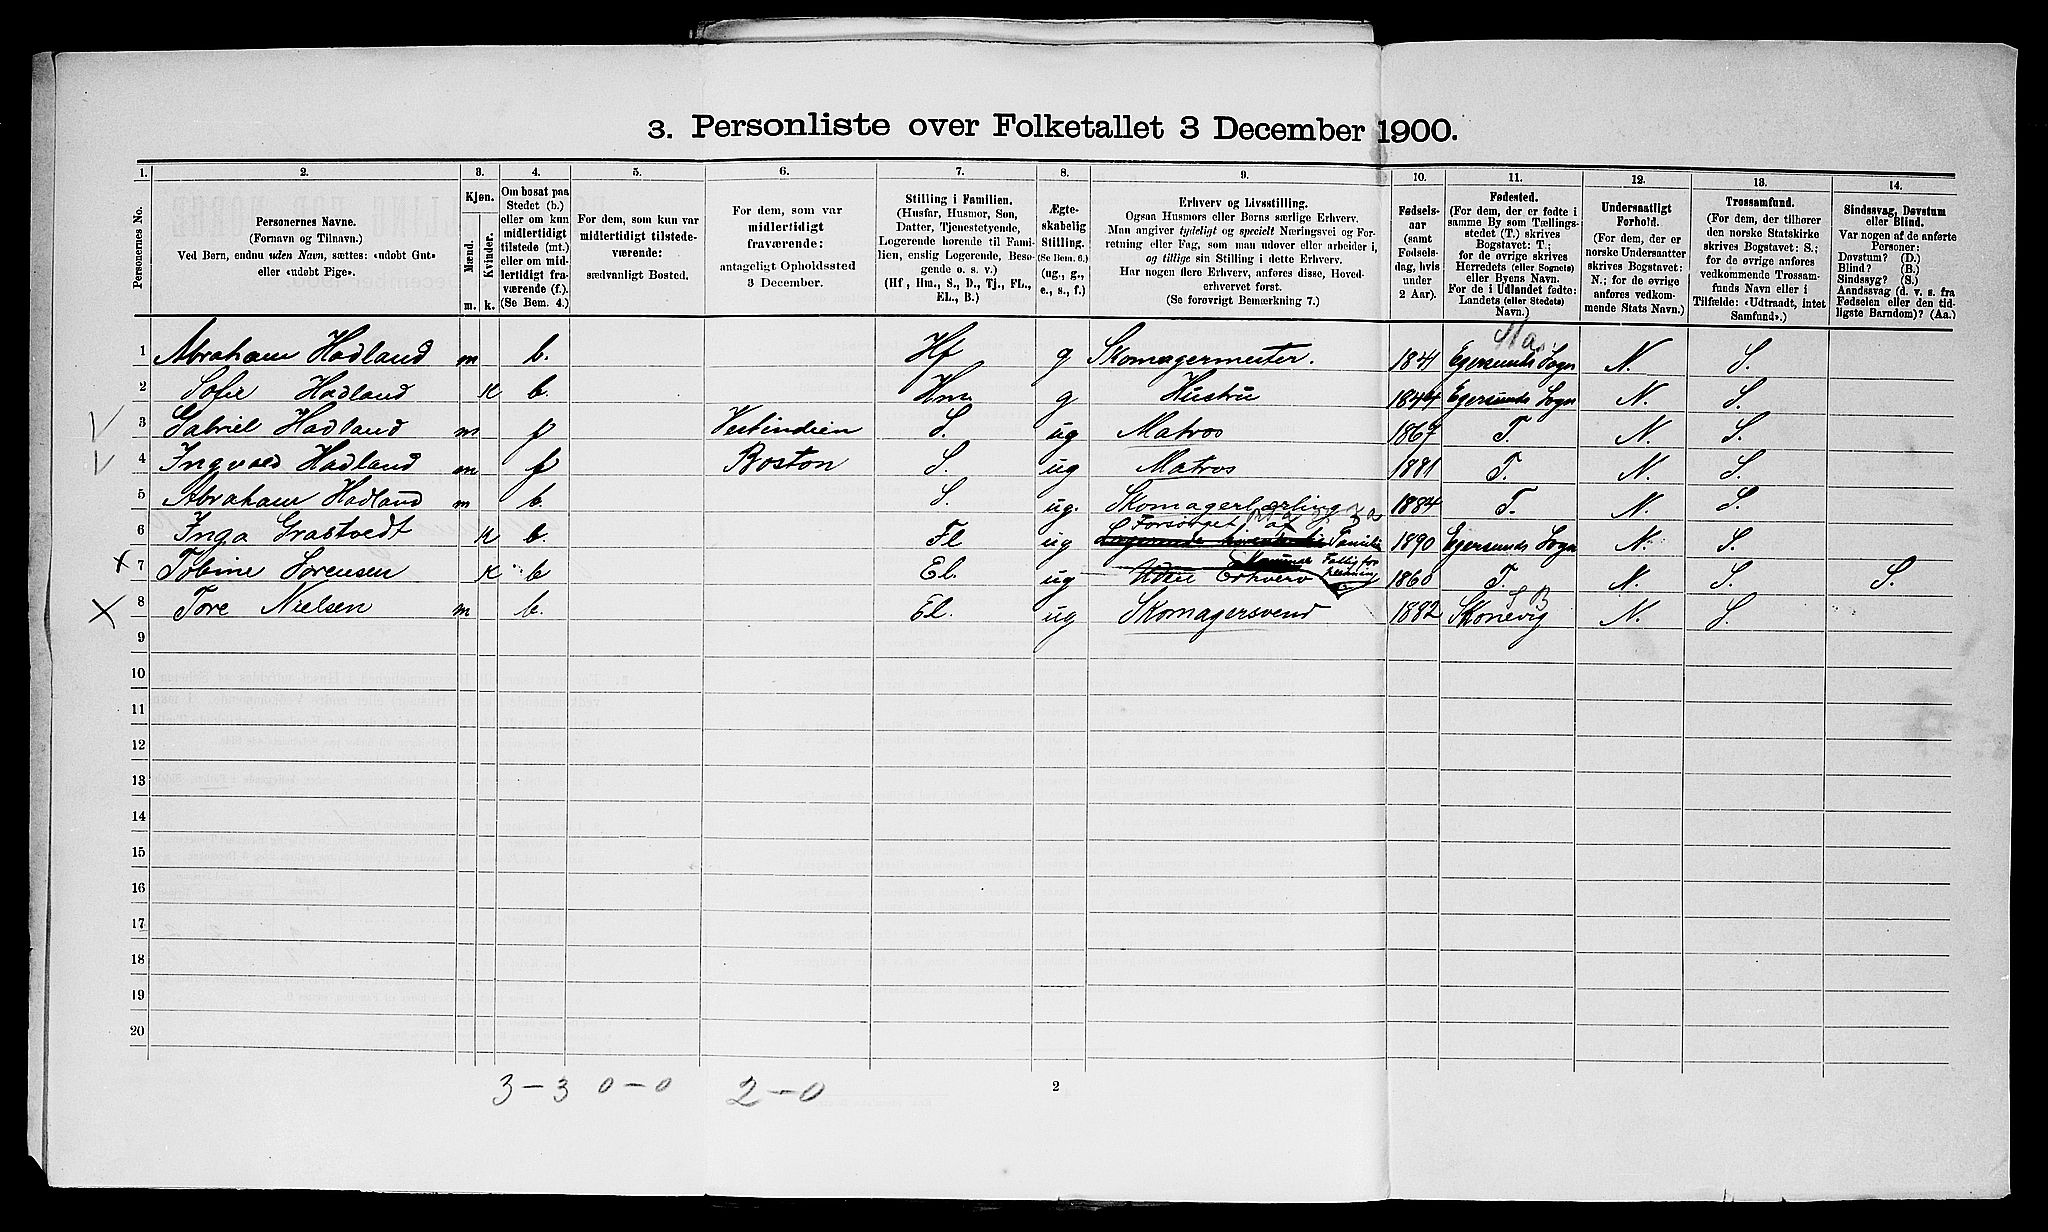 3. Personliste over Folketallet 3 December 1900.
1. 2. 3. 4. 5. 6. 7. 8. 9. 10. 11. 12. 13. 14.
Personernes No.
Personernes Navne.
(Fornavn og Tilnavn.)
Ved Børn, endnu uden Navn, sættes: «udøbt Gut»
eller «udøbt Pige».
Kjøn.
Mænd.
Kvinder.
m. k.
Om bosat paa
Stedet (b.)
eller om kun
midlertidigt
tilstede (mt.)
eller om mid-
lertidigt fra-
værende (f.).
(Se Bem. 4.)
For dem, som kun var
midlertidigt tilstede-
værende:
sædvanligt Bosted.
For dem, som var
midlertidigt
fraværende:
antageligt Opholdssted
3 December.
Stilling i Familien.
(Husfar, Husmor, Søn,
Datter, Tjenestetyende,
Logerende hørende til Fami-
lien, enslig Logerende, Besø-
gende o. s. v.)
(Hf., Hm., S., D., Tj., FL.,
EL., B.)
Ægte-
skabelig
Stilling.
(Se Bem. 6.)
(ug., g.,
e., s., f.)
Erhverv og Livsstilling.
Ogsaa Husmors eller Børns særlige Erhverv.
Man angiver tydeligt og specielt Næringsvei og For-
retning eller Fag, som man udøver eller arbeider i,
og tillige sin Stilling i dette Erhverv.
Har nogen flere Erhverv, anføres disse, Hoved-
erhvervet først.
(Se forøvrigt Bemærkning 7.)
Fødsels-
aar
(samt
Fødsels-
dag, hvis
under
2 Aar).
Fødested.
(For dem, der er fødte i
samme By som Tællings-
stedet (T.) skrives
Bogstavet: T.;
for de øvrige skrives
Herredets (eller Sognets)
eller Byens Navn.
For de i Udlandet fødte:
Landets (eller Stedets)
Navn.)
Undersaatligt
Forhold.
(For dem, der er
norske Undersaatter
skrives Bogstavet:
N.; for de øvrige
anføres vedkom-
mende Stats Navn.)
Trossamfund.
(For dem, der tilhører
den norske Statskirke
skrives Bogstavet: S.;
for de øvrige anføres
vedkommende Trossam-
funds Navn eller i
Tilfælde: «Udtraadt, intet
Samfund».)
Sindssvag, Døvstum
eller Blind.
Var nogen af de anførte
Personer:
Døvstum? (D.)
Blind? (B.)
Sindssyg? (S.)
Aandssvag (d. v. s. fra
Fødselen eller den tid-
ligste Barndom)? (Aa.)
1 Abraham Hadland m b. Hf g Skomagermester. 1841 Egersunds Sogn N. S.
2 Sofie Hadland k b. Hm g Hustru 1844 Egersunds Sogn N. S.
3 Gabriel Hadland m f Vestindien S. ug Matros 1867 T. N. S.
4 Ingvald Hadland m f Boston S. ug Matros 1881 T. N. S.
5 Abraham Hadland m b. S. ug. Skomagerlærling 1884 T. N. S.
6 Inga Grastvedt k b. Fl ug Forsørget af Familie 1890 Egersunds Sogn N. S.
7 Tobine Sørensen k b El. ug Uden Erhverv Fattigfor 1860 T. N. S. S.
8 Tore Nielsen m b. El. ug Skomagersvend 1882 Skonevig N. S.
9
10
11
12
13
14
15
16
17
18
19
20
3 – 3 0 – 0 2 – 0
2